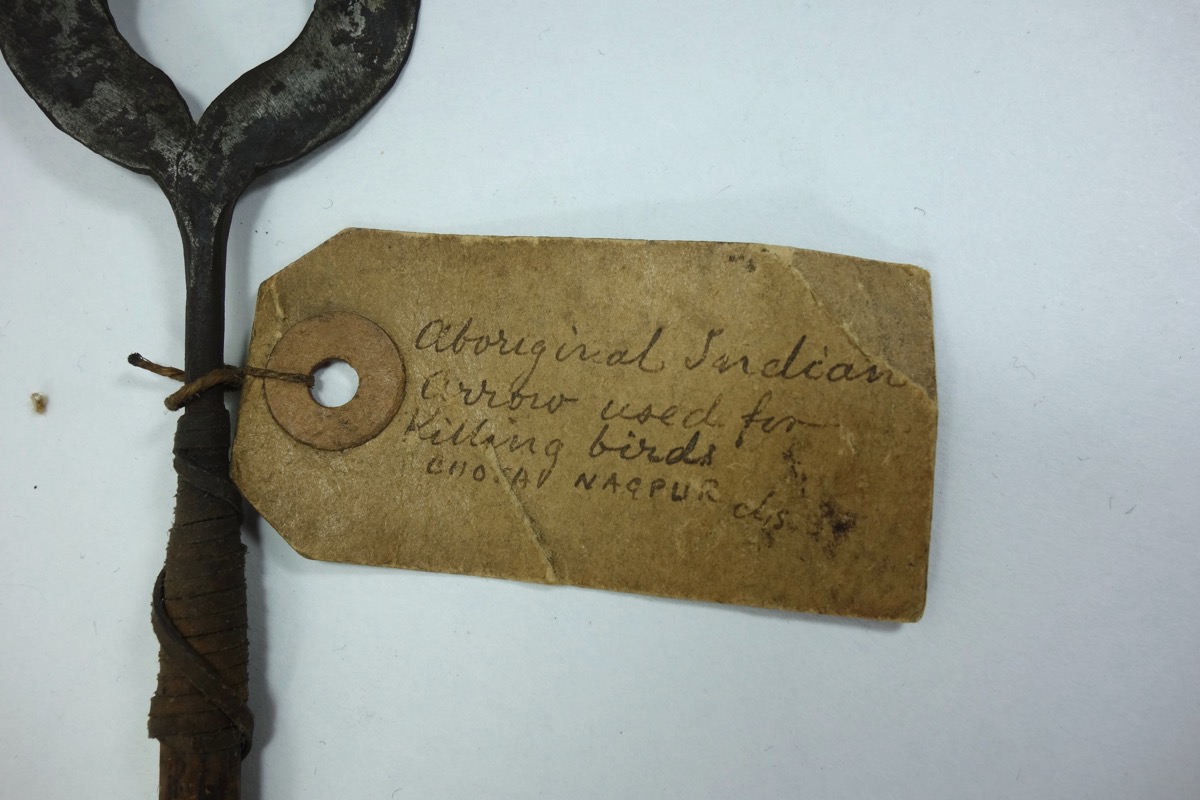 Aboriginal Indian
Arrow used for
Killing birds
CHOTA NAGPUR